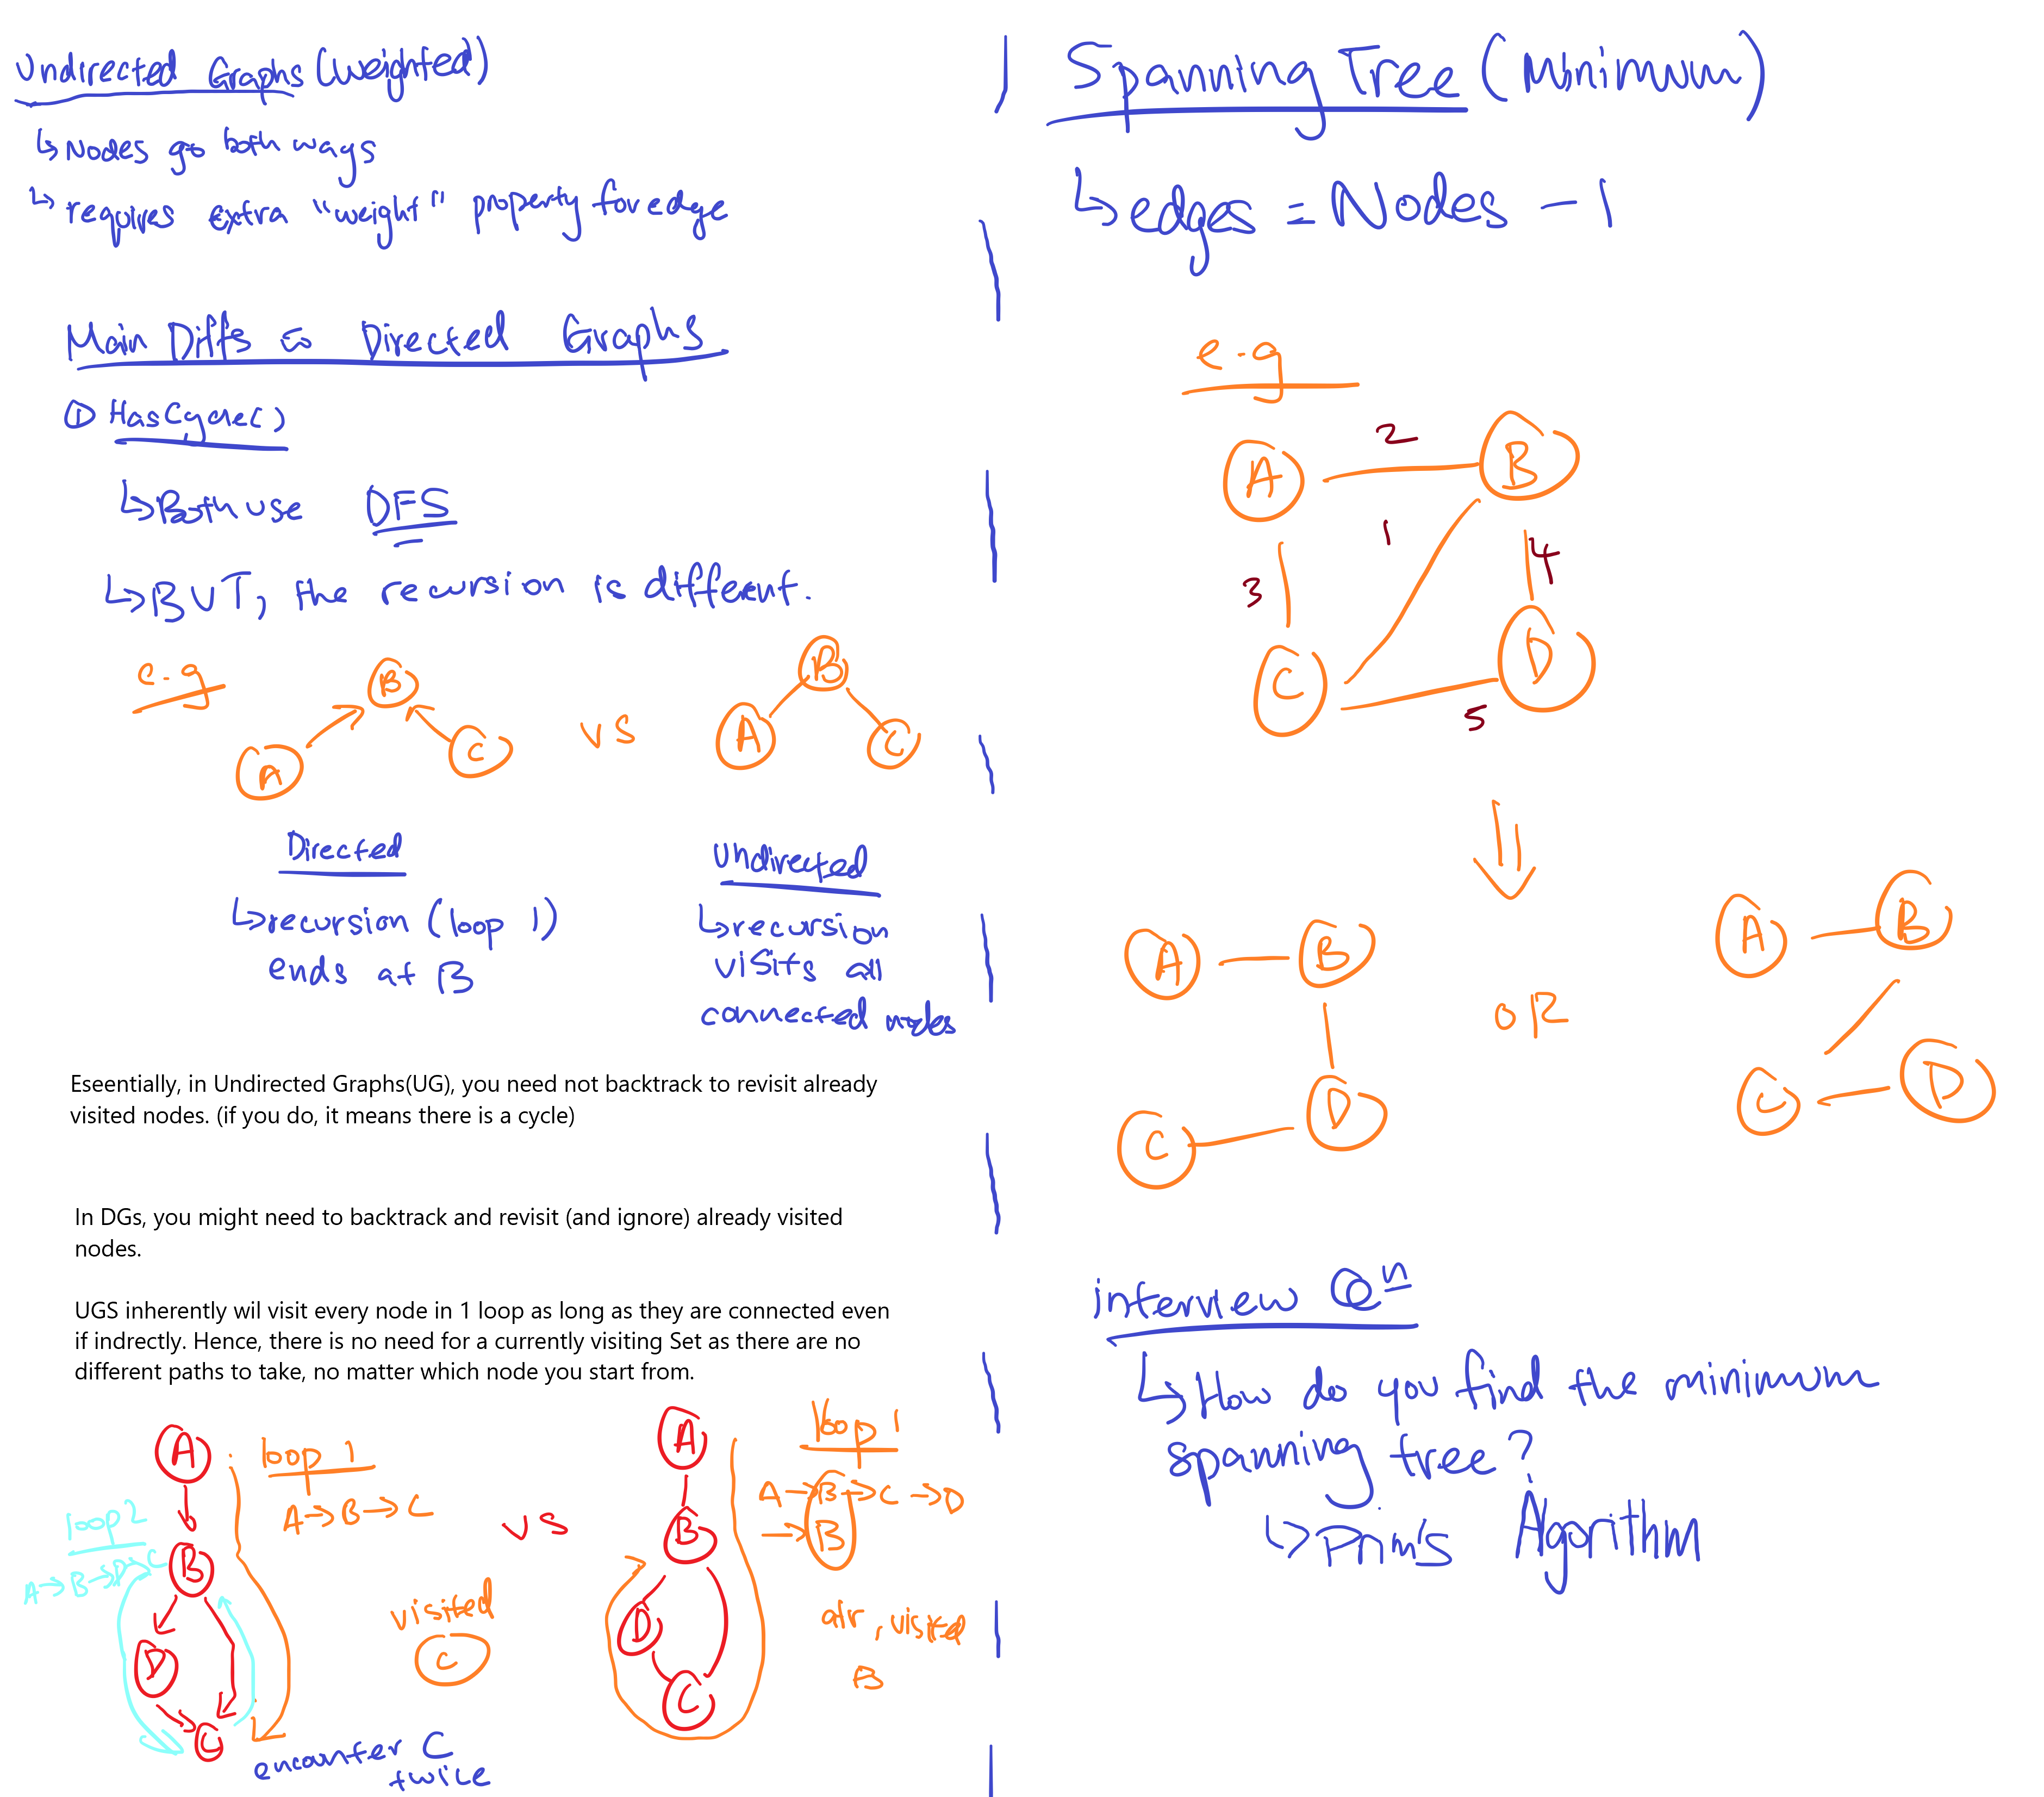 Undirected Graphs (Weighted)
↳ Nodes go both ways
↳ requires extra "weight" property for edge
Main Diffs Directed Graphs
① HasCycle()
↳ Both use DFS
↳ BUT, the recursion is different.
e.g
B
A
C
vs
B
A
C
Directed
↳ recursion (loop 1)
ends at B
Undirected
↳ recursion
visits all
connected nodes
Eseentially, in Undirected Graphs(UG), you need not backtrack to revisit already
visited nodes. (if you do, it means there is a cycle)
In DGs, you might need to backtrack and revisit (and ignore) already visited
nodes.
UGS inherently wil visit every node in 1 loop as long as they are connected even
if indrectly. Hence, there is no need for a currently visiting Set as there are no
different paths to take, no matter which node you start from.
A
B
D
C
loop 1
A → B → C
loop 2
A → B → D → C
visited
C
encounter C
twice
vs
A
B
D
C
loop 1
A → B → C → D
→ B
alr visited
B
Spanning Tree (Minimum)
↳ edges = Nodes - 1
e.g
A
2
B
1
3
4
C
5
D
A
B
C
D
OR
A
B
C
D
interview Qn
↳ How do you find the minimum
spanning tree?
↳ Prim's Algorithm